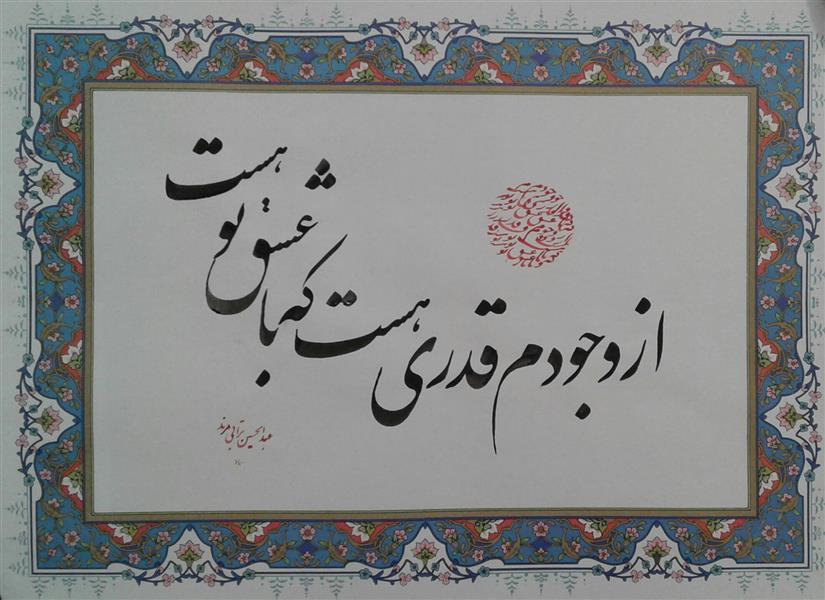 از وجودم قدری هست که با عشق تو هست
عبدالحسین ترابی مرند